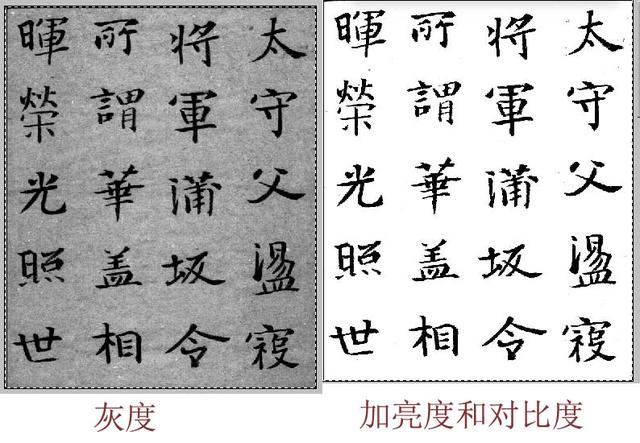 太守父盪寇
将軍蒲坂令
所謂華盖相
暉榮光照世
灰度
太守父盪寇
将軍蒲坂令
所謂華盖相
暉榮光照世
加亮度和对比度